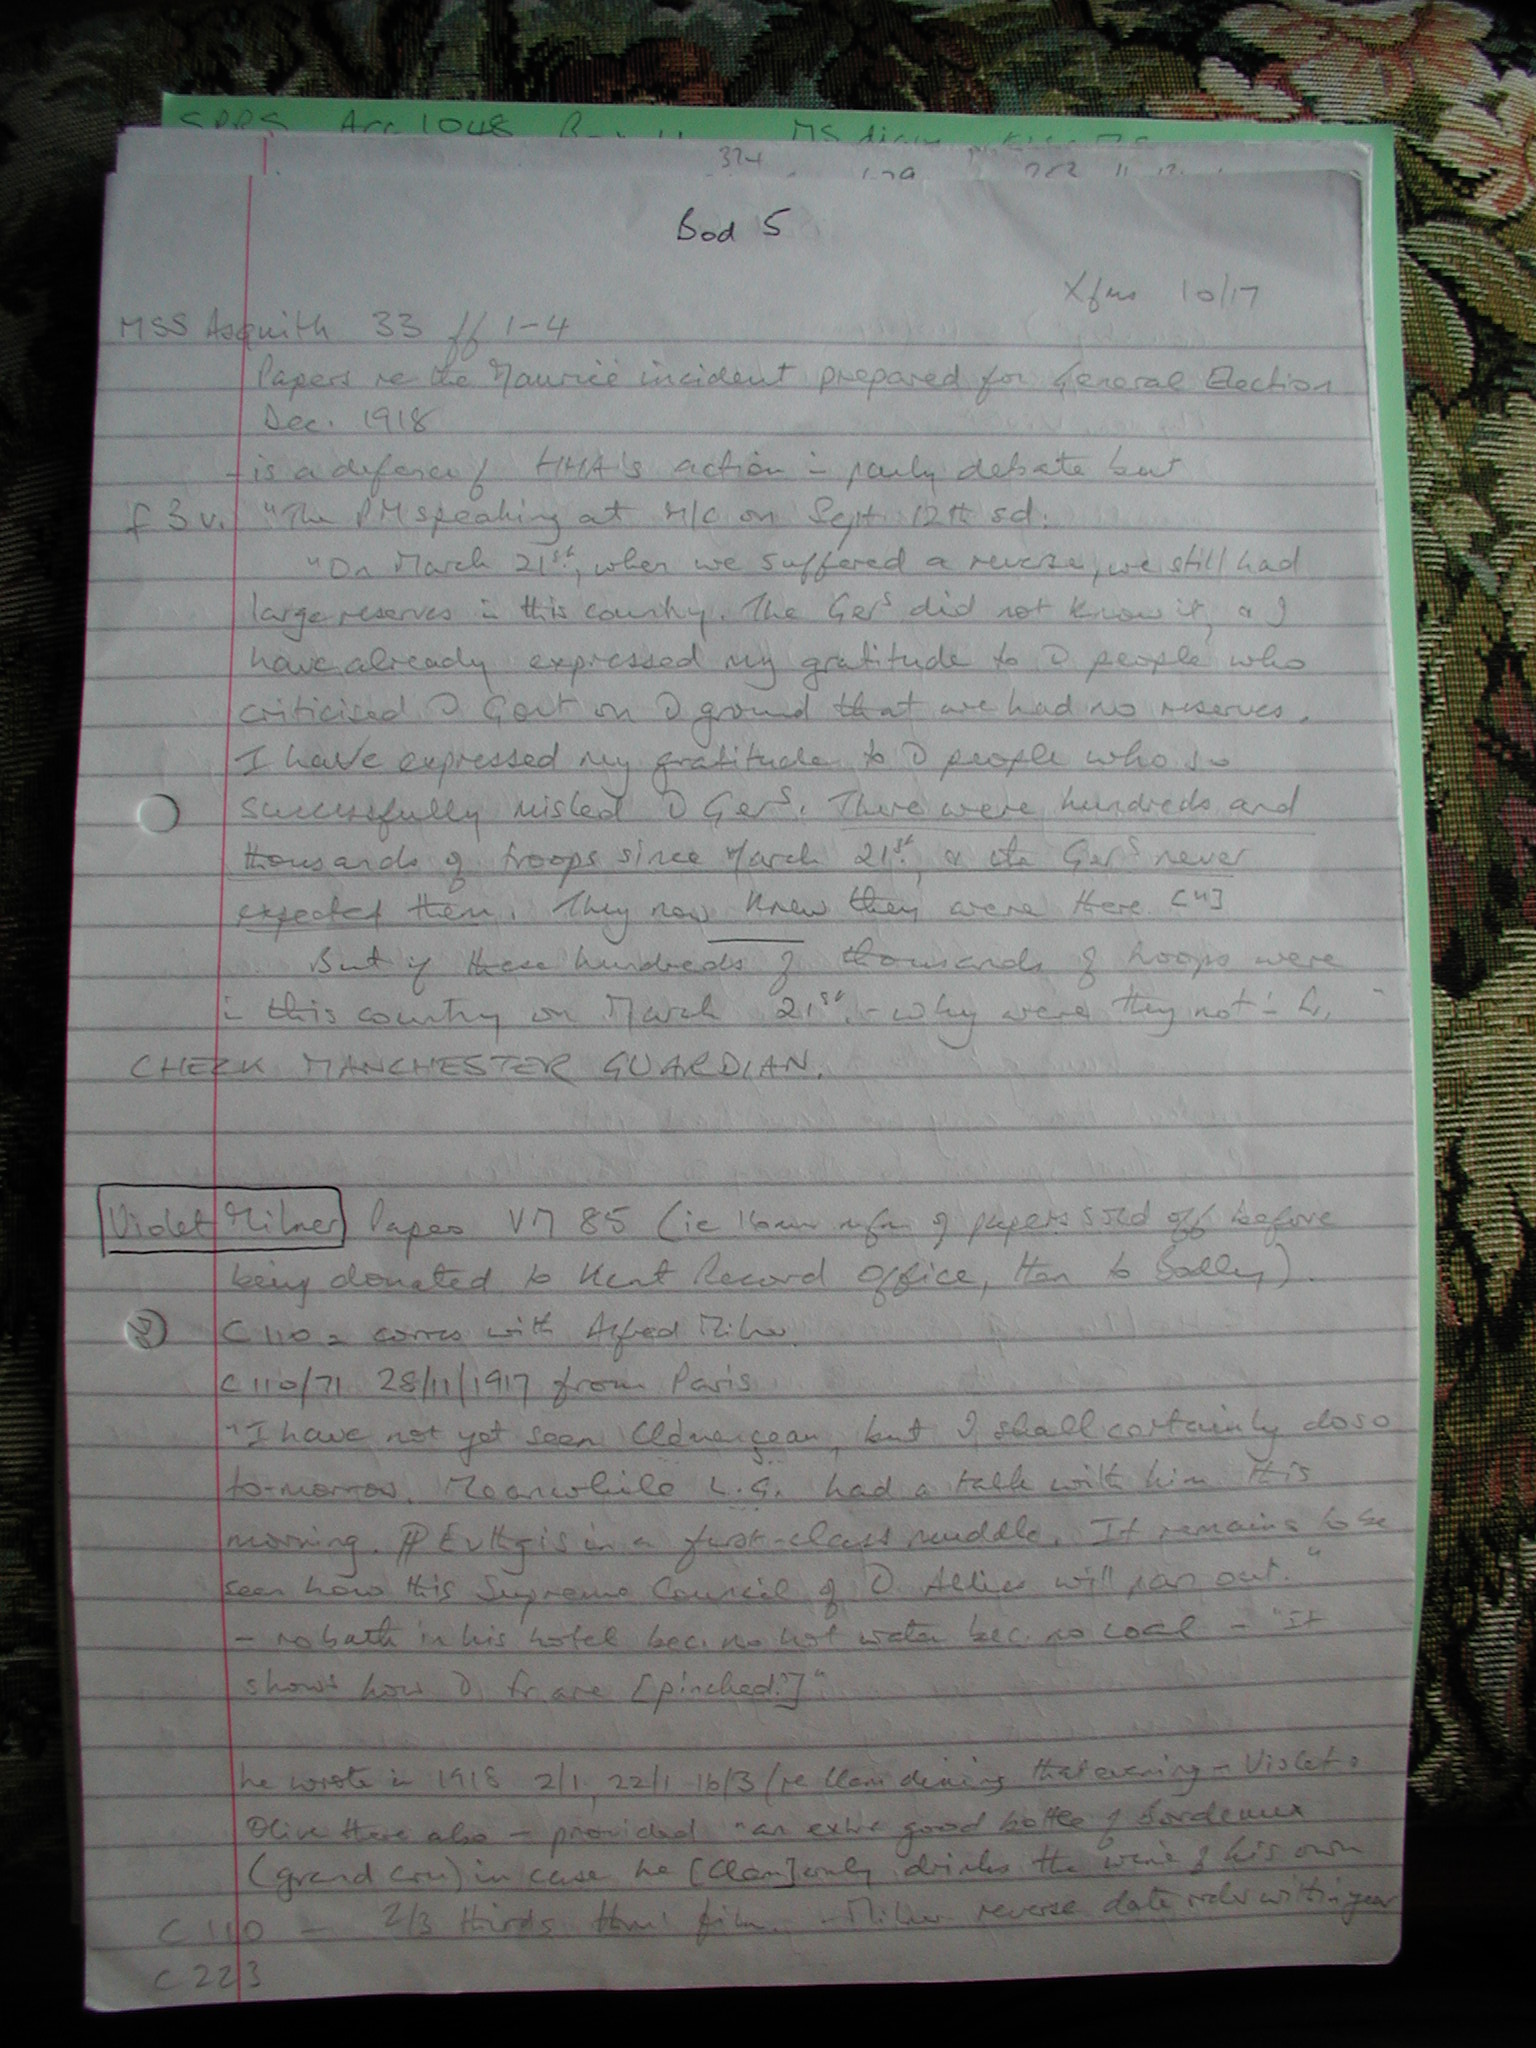 SPRS Acc 1048
374
Bod 5
Xfms 10/17
MSS Asquith 33 ff 1-4
Papers re the Maurice incident prepared for General Election
Dec. 1918
- is a defence of HHA's action in parly debate but
f 3 v. "The PM speaking at M/C on Sept 12th sd:
"On March 21st, when we suffered a reverse, we still had
large reserves in this country. The Gers did not know it, & I
have already expressed my gratitude to D people who
criticised D Govt on D ground that we had no reserves.
I have expressed my gratitude to D people who so
successfully misled D Gers. There were hundreds and
thousands of troops since March 21st, & the Gers never
expected them. They now knew they were there ["]
But if these hundreds of thousands of troops were
in this country on March 21st - why were they not in Fr. "
CHECK MANCHESTER GUARDIAN.
Violet Milner Papers VM 85 (ie 16mm mfm of papers sold off before
being donated to Kent Record Office, then to Bodley).
C 110 = corres with Alfred Milner
C 110/71 28/11/1917 from Paris
"I have not yet seen Clémenceau, but I shall certainly do so
to-morrow. Meanwhile L.G. had a talk with him this
morning. // Evthg is in a first-class muddle. It remains to be
seen how this Supreme Council of D Allies will pan out."
- no bath in his hotel bec. no hot water bec. no coal - "It
shows how D Fr are [pinched?]"
he wrote in 1918 2/1, 22/1 16/3 (re Clem dining that evening - Violet &
Olive there also - provided "an extra good bottle of Bordeaux
(grand cru) in case he [Clem] only drinks the wine of his own
C 110 - 2/3 thirds thro' film. - Milner reverse date order within year
C 223